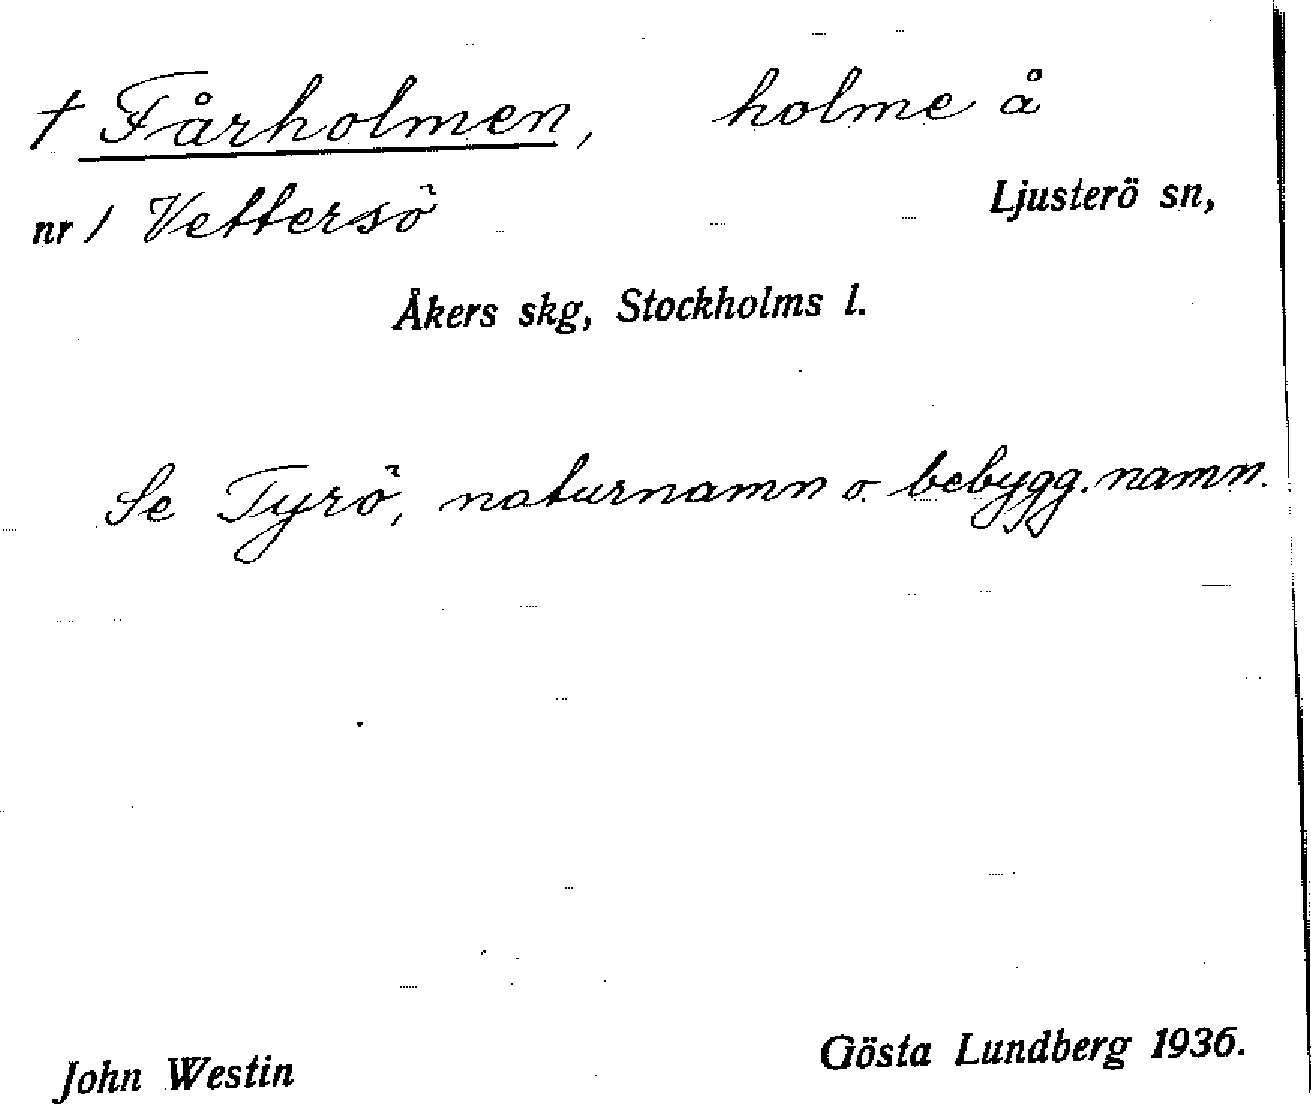 † Fårholmen, holme å
nr 1 Vettersö Ljusterö sn,
Åkers skg, Stockholms l.
Se Tyrö, naturnamn o. bebygg. namn.
John Westin Gösta Lundberg 1936.